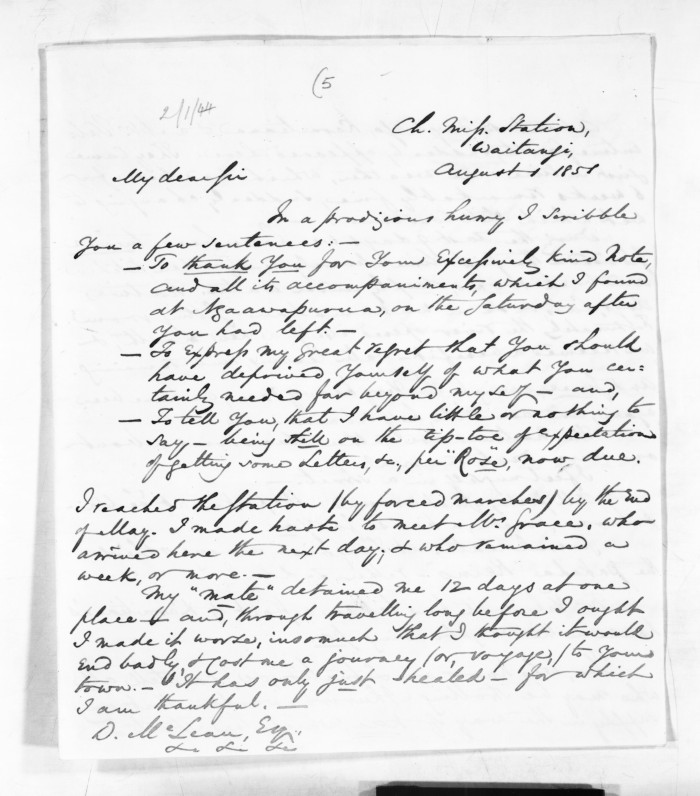 (5
2/1/44
Ch. Miss. Station,
Waitangi,
August 1 1851
My dear Sir
In a prodigious hurry I scribble
You a few sentences:—
— To thank You for Your Excessively kind Note,
and all its accompaniments, which I found
at Ngaawapurua, on the Saturday after
You had left.—
— To Express my great regret that You should
have deprived Yourself of what You cer-
tainly needed far beyond myself — and,
— To tell You, that I have little or nothing to
say — being still on the tip-toe of expectation
of getting some Letters, &c, per "Rose", now due.
I reached the Station (by forced marches) by the End
of May. I made haste to meet Mr. Grace, who
arrived here the next day; & who remained a
week, or more.—
My "mate" detained me 12 days at one
place — and, through travelling long before I ought
I made it worse, insomuch that I thought it would
End badly, & cost me a journey (or, voyage,) to Your
town.— It has only just healed — for which
I am thankful.—
D. McLean, Esq.
&c &c &c